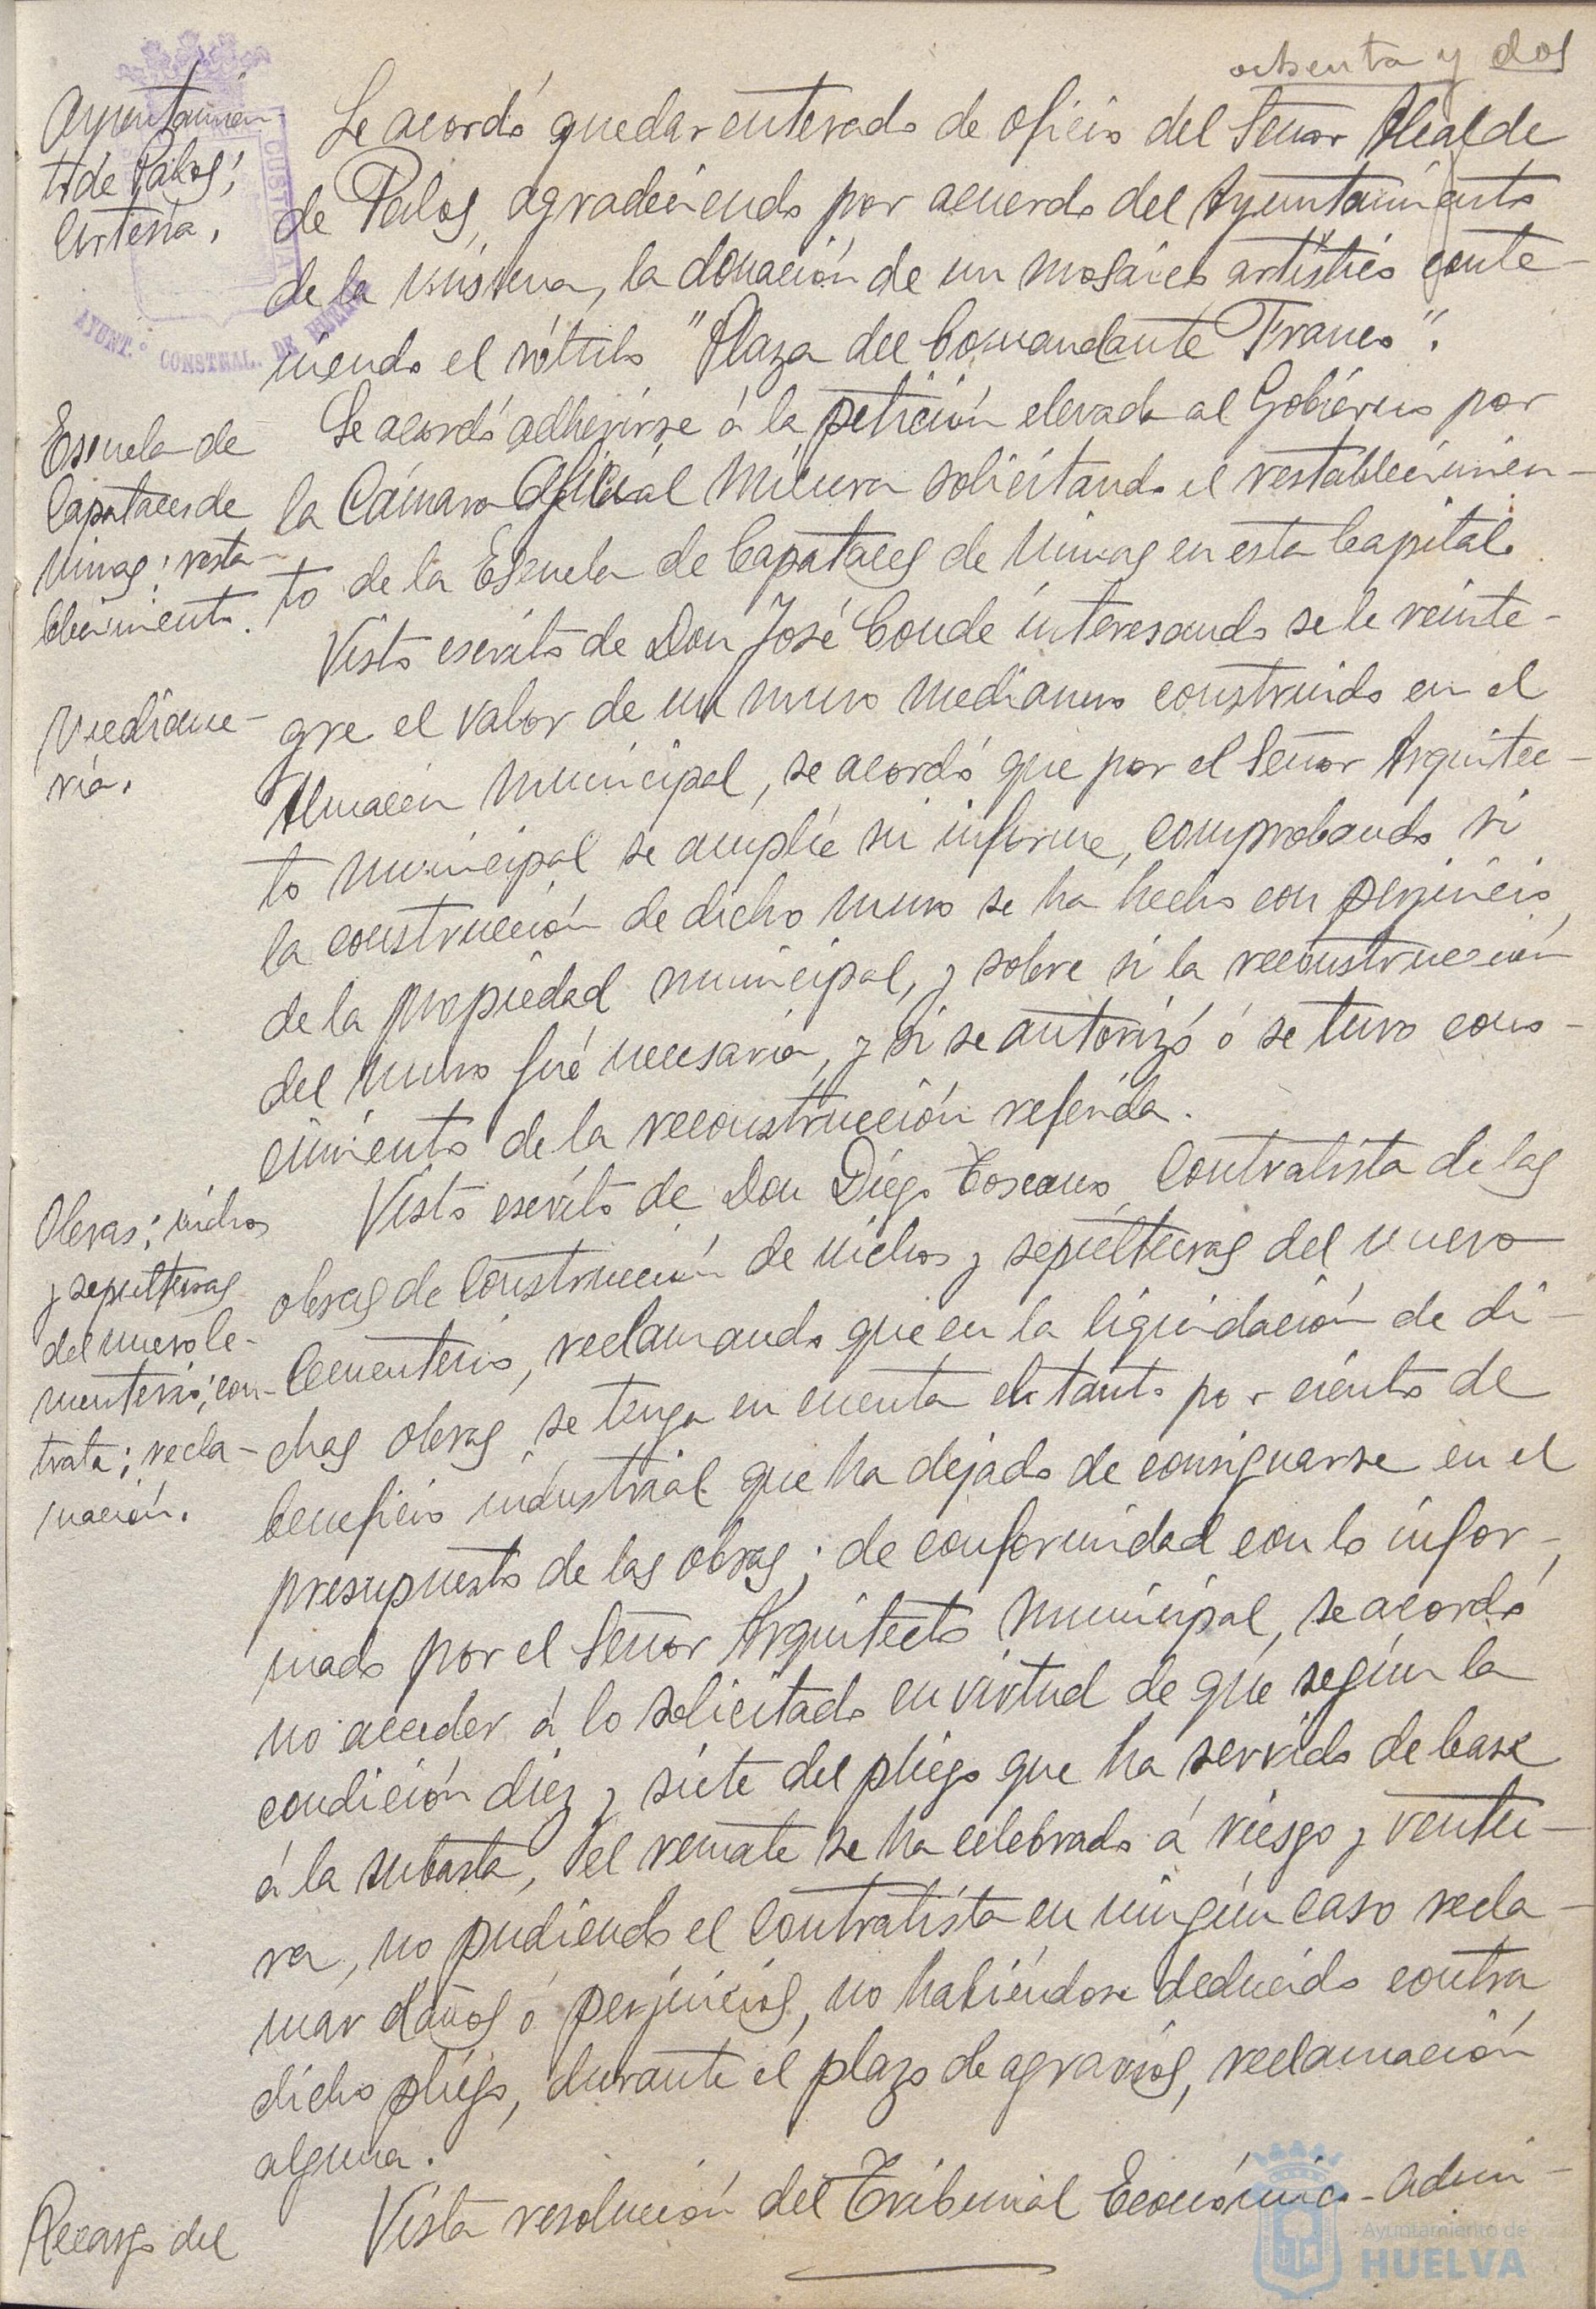 ochenta y dos
Ayuntamien-
to de Palos;
Cortesía.
Se acordó quedar enterado de oficio del Señor Alcalde
de Palos, agradeciendo por acuerdo del Ayuntamiento
de la misma, la donación de un mosaico artístico conte-
niendo el rótulo "Plaza del Comandante Franco".
Escuela de
Capataces de
Minas; resta-
blecimiento.
Se acordó adherirse á la petición elevada al Gobierno por
la Cámara Oficial Minera solicitando el restablecimien-
to de la Escuela de Capataces de Minas en esta Capital.
Mediane-
ría.
Visto escrito de Don José Conde interesando se le reinte-
gre el valor de un muro medianero construido en el
Almacén municipal, se acordó que por el Señor Arquitec-
to municipal se amplíe su informe, comprobando si
la construcción de dicho muro se ha hecho con perjuicio
de la propiedad municipal, y sobre si la reconstrucción
del muro fué necesaria, y si se autorizó ó se tuvo cono-
cimiento de la reconstrucción referida.
Obras; nichos
y sepulturas
del nuevo Ce-
menterio; con-
trata; recla-
mación.
Visto escrito de Don Diego Toscano, Contratista de las
obras de Construcción de nichos y sepulturas del nuevo
Cementerio, reclamando que en la liquidación de di-
chas obras se tenga en cuenta el tanto por ciento de
beneficio industrial que ha dejado de consignarse en el
presupuesto de las obras; de conformidad con lo infor-
mado por el Señor Arquitecto municipal, se acordó
no acceder á lo solicitado en virtud de que según la
condición diez y siete del pliego que ha servido de base
á la subasta, el remate se ha celebrado á riesgo y ventu-
ra, no pudiendo el Contratista en ningún caso recla-
mar daños ó perjuicios, no habiéndose deducido contra
dicho pliego, durante el plazo de agravios, reclamación
alguna.
Recargo del
Vista resolución del Tribunal Económico-admi-
AYUNT.º CONSTNAL. DE HUELVA
CUSTODIA
Ayuntamiento de
HUELVA